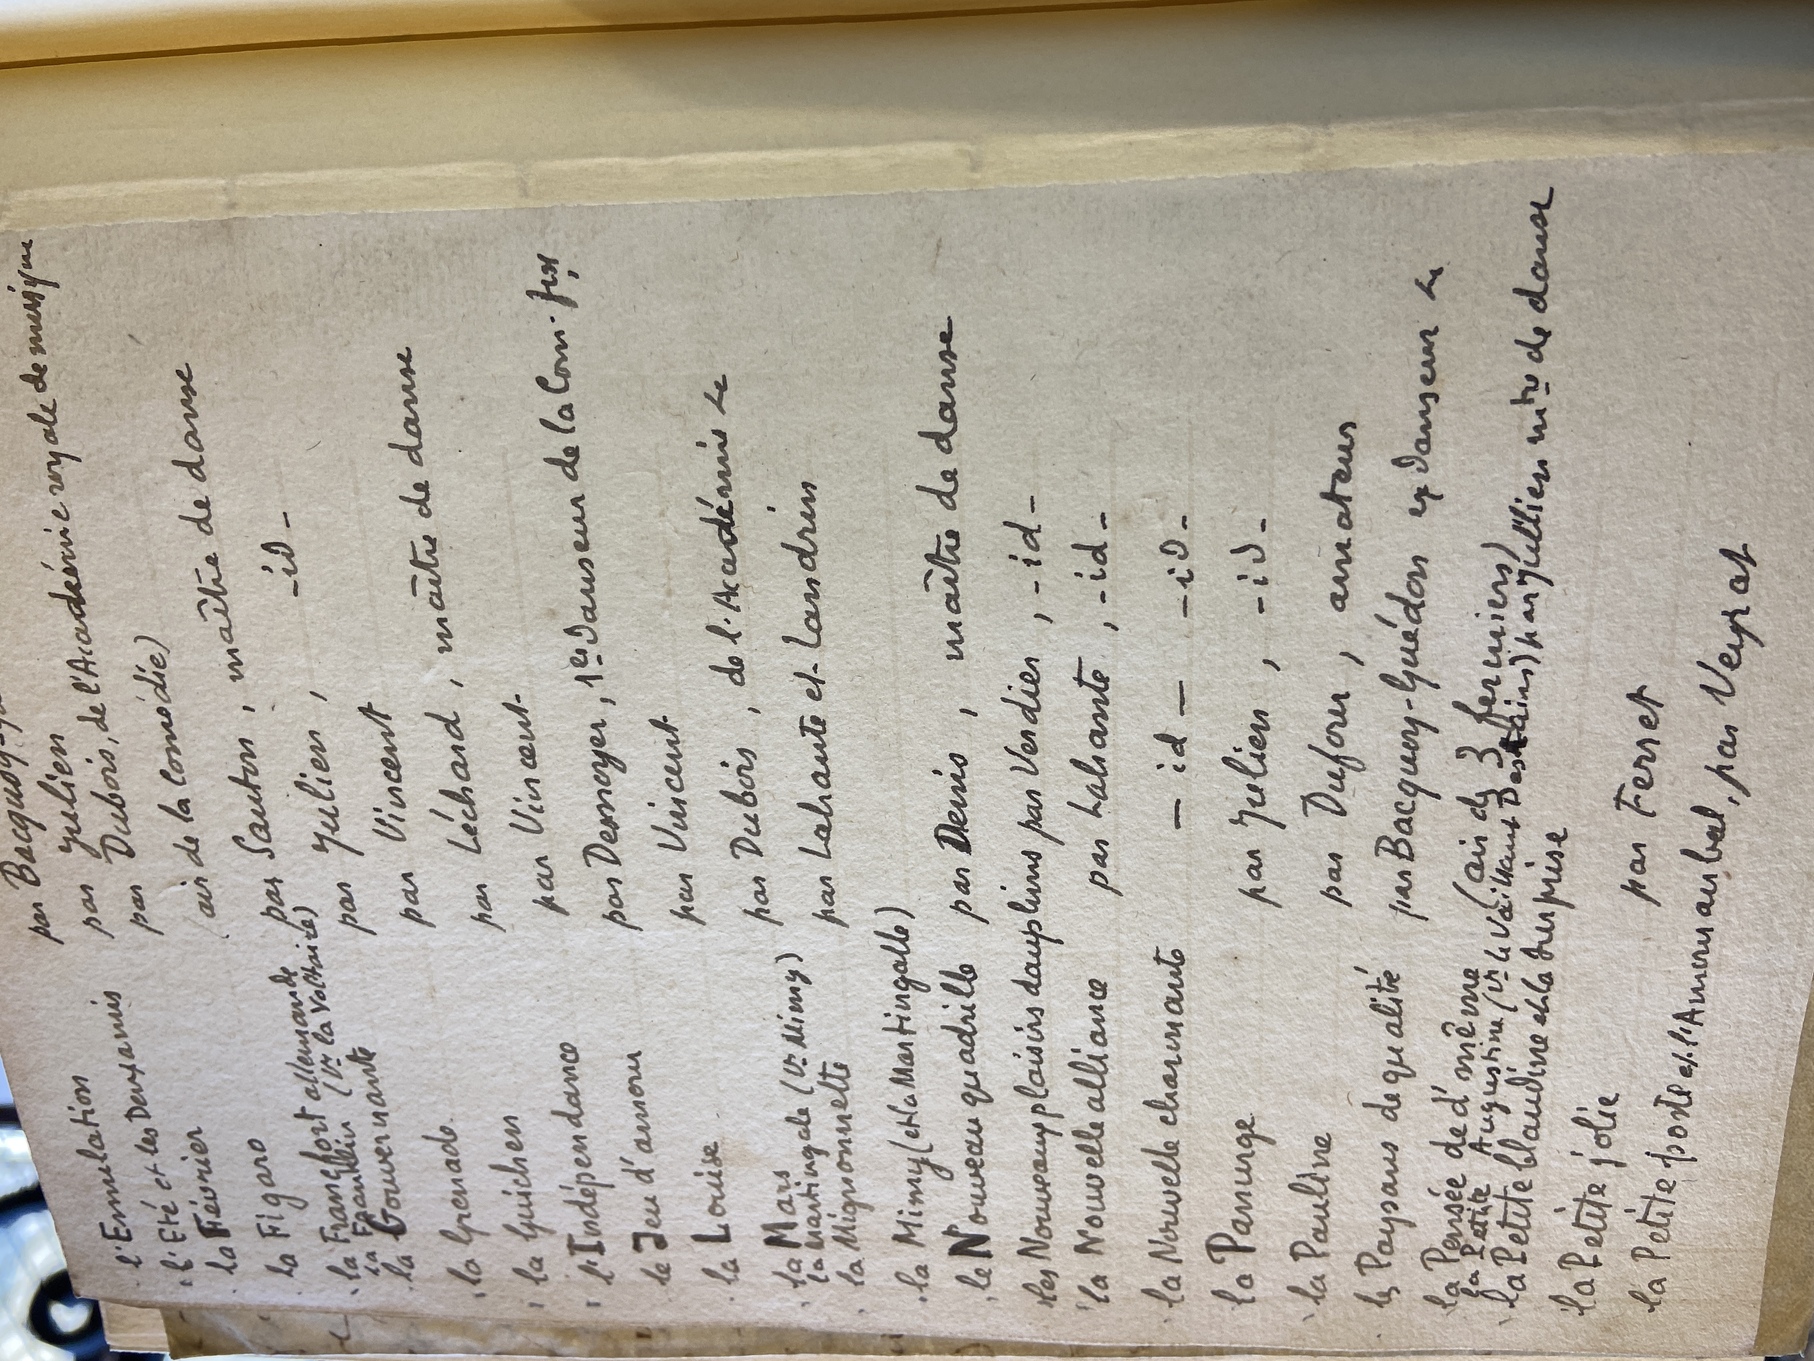 l'Emulation par Bacquoy-
l'Eté et les Deux amis par Julien
la Février par Dubois, de l'Académie royale de musique
(air de la Comédie)
la Figaro par Sauton, maître de danse
la Francfort allemande par Julien, -id-
la Franklin (vr la Voltaire)
la Gouvernante par Vincent
la Grenade par Léchard, maître de danse
la Guichen par Vincent
l'Indépendance par Desnoyer, 1er danseur de la Com. fse,
le Jeu d'amour par Vincent
la Louise par Dubois, de l'Académie &
la Mars par Lahante et Landrin
la Martingale (vr Mimy)
la Mignonnette
la Mimy (et la Martingalle)
le Nouveau quadrille par Denis, maître de danse
les Nouveaux plaisirs dauphins par Verdier, -id-
la Nouvelle alliance par Lahante, -id-
la Nouvelle charmante — id — -id-
la Panurge par Julien, -id-
la Pauline par Dufour, amateur
les Paysans de qualité par Bacquoy-Guédon ex danseur &
la Pensée de d' même (air des 3 fermiers)
la Petite Augustine (vr le Vaillant Destaing) par Jullien mtre de danse
la Petite blaudine et la surprise
la Petite jolie par Ferret
la Petite poste et l'Amour au bal, par Veyrat